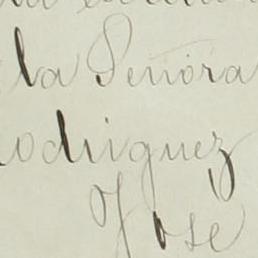 la Señora
Rodriguez
José